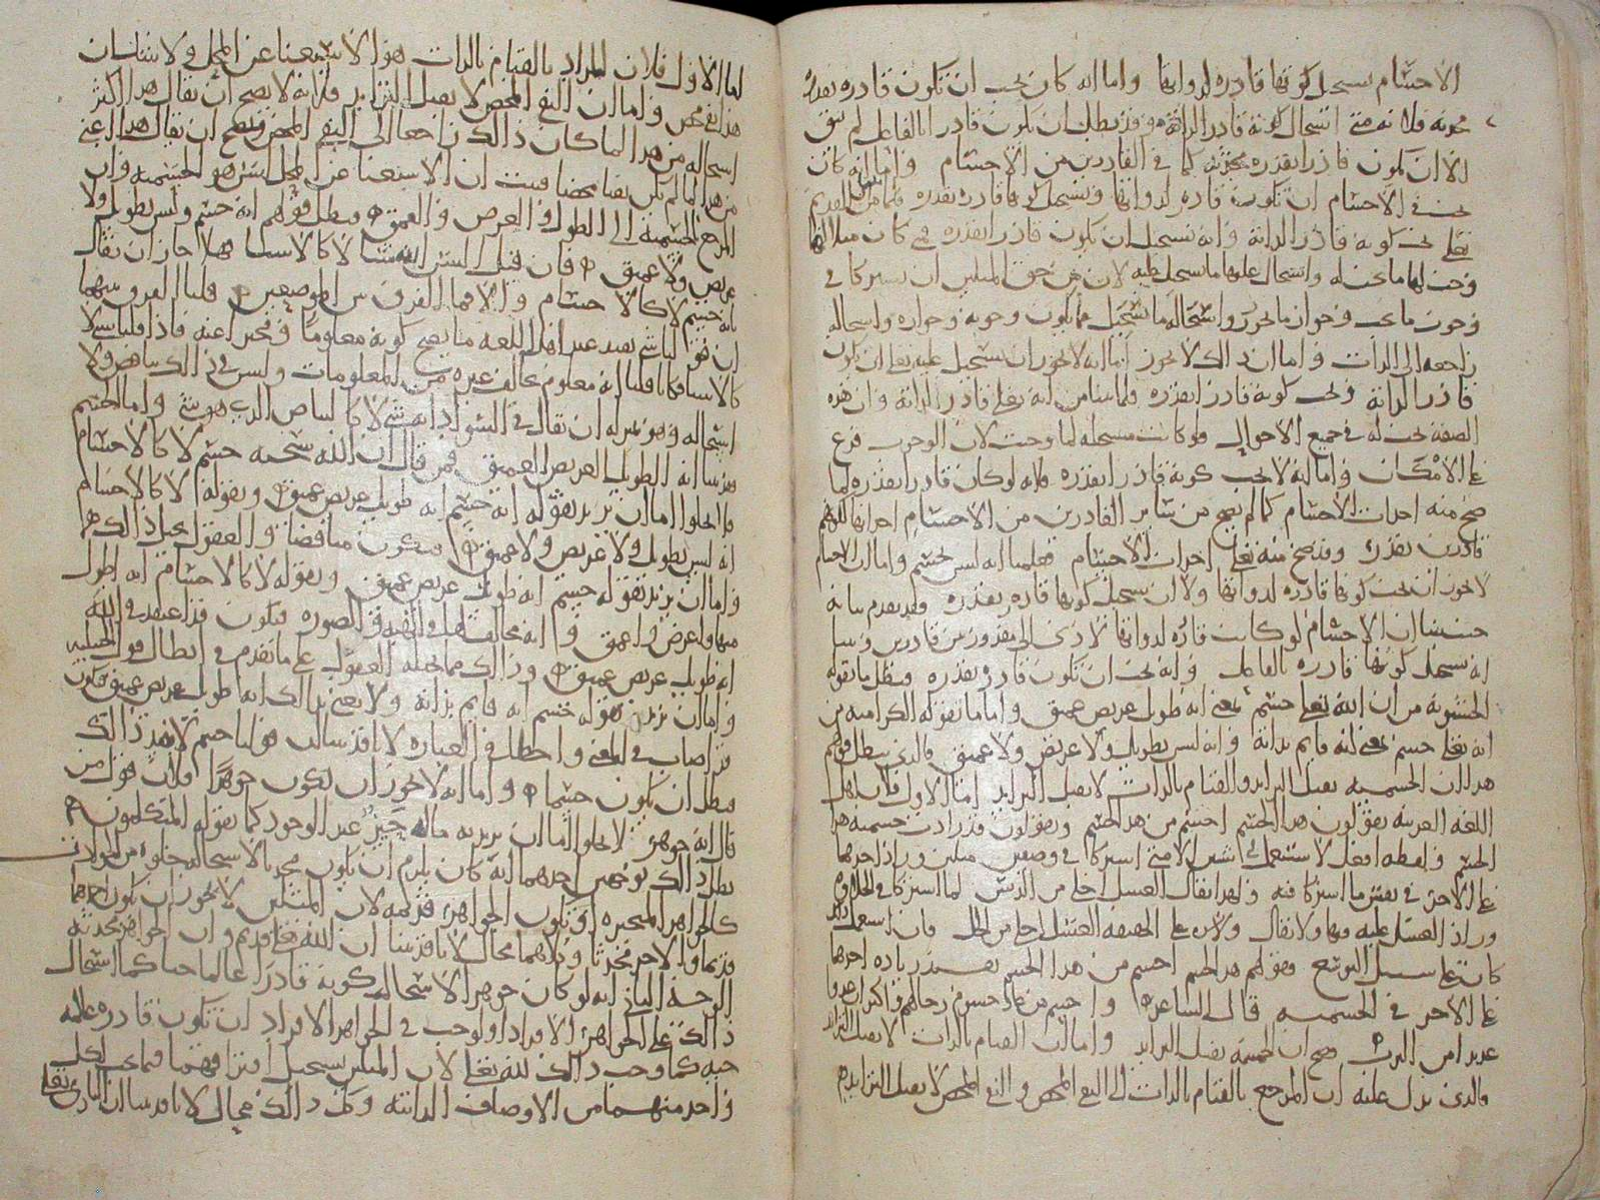 الاجسام يستحيل كونها قادرة لذواتها واما انه كان يجب ان تكون قادره بقدرة
محدثة فلانه متى استحال كونه قادرا لذاته وقد بطل ان يكون قادرا بالفاعل لم يبق
الا ان يكون قادرا بقدره محدثه كما في القادرين من الاجسام واما انه كان
يجب في الاجسام ان تكون قادره لذواتها ويستحيل كونها قادره بقدره
تعلى يجب كونه قادرا لذاته وانه يستحيل ان يكون قادرا بقدره فلو كان مثلا لها
وجب لها ما يجب له واستحال عليها ما يستحيل عليه لان من حق المثلين ان يشتركا في
وجوب ما يجب وجواز ما يجوز واستحالة ما يستحيل مما يكون وجوبه وجوازه واستحالته
راجعه الى الذات واما ان ذلك لا يجوز اما انه لا يجوز ان يستحيل عليه تعلى ان يكون
قادرا لذاته ويجب كونه قادرا بقدره فلما بينا من انه تعلى قادر لذاته وان هذه
الصفه تجب له في جميع الاحوال ولو كانت مستحيله لما وجبت لان الوجوب فرع
على الامكان واما انه لا يجب كونه قادرا بقدره فلانه لو كان قادرا بقدره لما
صح منه احداث الاجسام كما لم يصح من سائر القادرين من الاجسام احداثها لكونهم
قادرين بقدر وقد صح منه تعلى احداث الاجسام فعلمنا انه ليس بجسم واما ان الاجسام
لا يجوز ان يجب كونها قادره لذواتها ولا ان يستحيل كونها قادره بقدره فقد تقدم بيانه
حيث بينا ان الاجسام لو كانت قادره لذواتها لادى الى مقدور بين قادرين وبينا
انه يستحيل كونها قادره بالفاعل وانه يجب ان تكون قادره بقدره فبطل ما تقوله
الحشوية من ان الله تعلى جسم بمعنى انه طويل عريض عميق واما ما تقوله الكراميه من
انه تعلى جسم بمعنى انه قايم بذاته وانه ليس بطويل ولا عريض ولا عميق فالذي يبطل قولهم
هذا ان الجسميه تقبل التزايد والقيام بالذات لا يقبل التزايد اما الاول فلان اهل
اللغه العربيه يقولون هذا الجسم اجسم من هذا الجسم ويقولون قد زادت جسمية هذا
الجسم ولفظه افعل لا تستعمل في شيين الا متى اشتركا في وصفين مثلين وزاد احدهما
على الاخر في بعض ما اشتركا فيه ولهذا يقال العسل احلى من الدبس لما اشتركا في الحلاوه
وزاد العسل عليه فيها ولا يقال على الحقيقه العسل احلى من الخل فان استعمل ذلك
كان على سبيل التوسع وقولهم هذا الجسم اجسم من هذا الجسم يفيد زياده احدهما
على الاخر في الجسميه قال الشاعر واجسم من عاد جسوم رجالهم واكثر ان عدوا
عديدا من الترب صح ان الجسميه تقبل التزايد واما ان القيام بالذات لا يقبل التزايد
فالذي يدل عليه ان المرجع بالقيام بالذات الى النفي المحض والنفي المحض لا يقبل التزايد
اما الاول فلان المراد بالقيام بالذات هو الاستغنا عن المحل ولا شك ان
هذا نفي محض واما ان النفي المحض لا يقبل التزايد فلانه لا يصح ان يقال هذا اكثر
استحاله من هذا لما كان ذلك راجعا الى النفي المحض ويصح ان يقال هذا اغنى
من هذا لما لم يكن نفيا محضا فثبت ان الاستغنا عن المحل ليس هو الجسميه وان
المرجع بالجسميه الى الطول والعرض والعمق فبطل قولهم انه جسم وليس بطويل ولا
عريض ولا عميق فان قيل اليس الله شيا لا كالاشيا فهلا جاز ان يقال
بانه جسم لا كالاجسام والا فما الفرق بين الموضعين قلنا الفرق بينهما
ان قولنا شي يفيد عند اهل اللغه ما يصح كونه معلوما ومخبرا عنه فاذا قلنا شي لا
كالاشيا فكانا قلنا انه معلوم يخالف غيره من المعلومات وليس في ذلك تناقض ولا
استحاله وهو بمنزله ان يقال في السواد انه شي لا كالبياض الذي هو شي واما الجسم
فبينا انه الطويل العريض العميق فمن قال ان الله سبحنه جسم لا كالاجسام
فلا يخلوا اما ان يريد بقوله انه جسم انه طويل عريض عميق وبقوله لا كالاجسام
انه ليس بطويل ولا عريض ولا عميق فيكون مناقضا والعقول تحيل ذلك
واما ان يريد بقوله جسم انه طويل عريض عميق وبقوله لا كالاجسام انه اطول
منها واعرض واعمق او انه مخالف لها في الهيه والصوره فيكون قد اعتقد في الله
انه طويل عريض عميق وذلك مما تحيله العقول على ما تقدم في ابطال قول الحنبليه
واما ان يريد بقوله جسم انه قايم بذاته ولا يعني بذلك انه طويل عريض عميق فيكون
قد اصاب في المعنى واخطا في العباره لانا قد بينا ان قولنا جسم لا يفيد ذلك
فبطل ان يكون جسما واما انه لا يجوز ان يكون جوهرا فلان قول من
قال انه جوهر لا يخلوا اما ان يريد به ماله حيز عند الوجود كما يقوله المتكلمون
بطل ذلك بوجهين احدهما انه كان يلزم ان يكون محدثا لاستحاله خلوه من الحوادث
كالجواهر المتحيزه او تكون الجواهر قديمه لان المثلين لا يجوز ان يكون احدهما
قديما والاخر محدثا وكلاهما محال لانا قد بينا ان الله تعلى قديم وان الجواهر محدثه
الوجه الثاني انه لو كان جوهرا لاستحال كونه قادرا عالما حيا كما استحال
ذلك على الجواهر الافراد او لوجب في الجواهر الافراد ان تكون قادره عالمه
حيه كما وجب ذلك لله تعلى لان المثلين يستحيل افتراقهما فيما يجب لكل
واحد منهما من الاوصاف الذاتيه وكل ذلك محال لانا قد بينا ان الباري تعلى